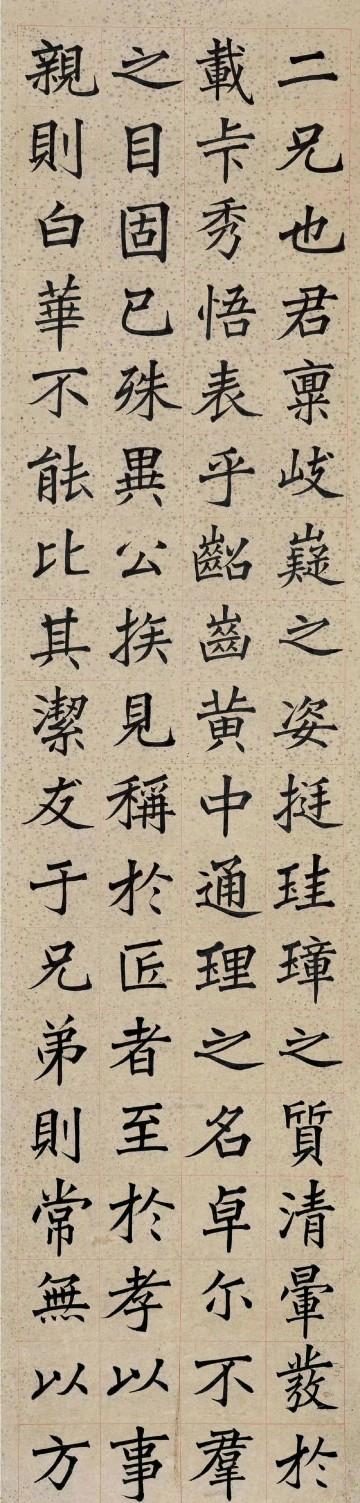 二兄也君稟岐嶷之姿挺珪璋之質清暈發於
載卡秀悟表乎齠齒黃中通理之名卓尒不羣
之目固已殊異公族見稱於匠者至於孝以事
親則白華不能比其潔友于兄弟則常無以方